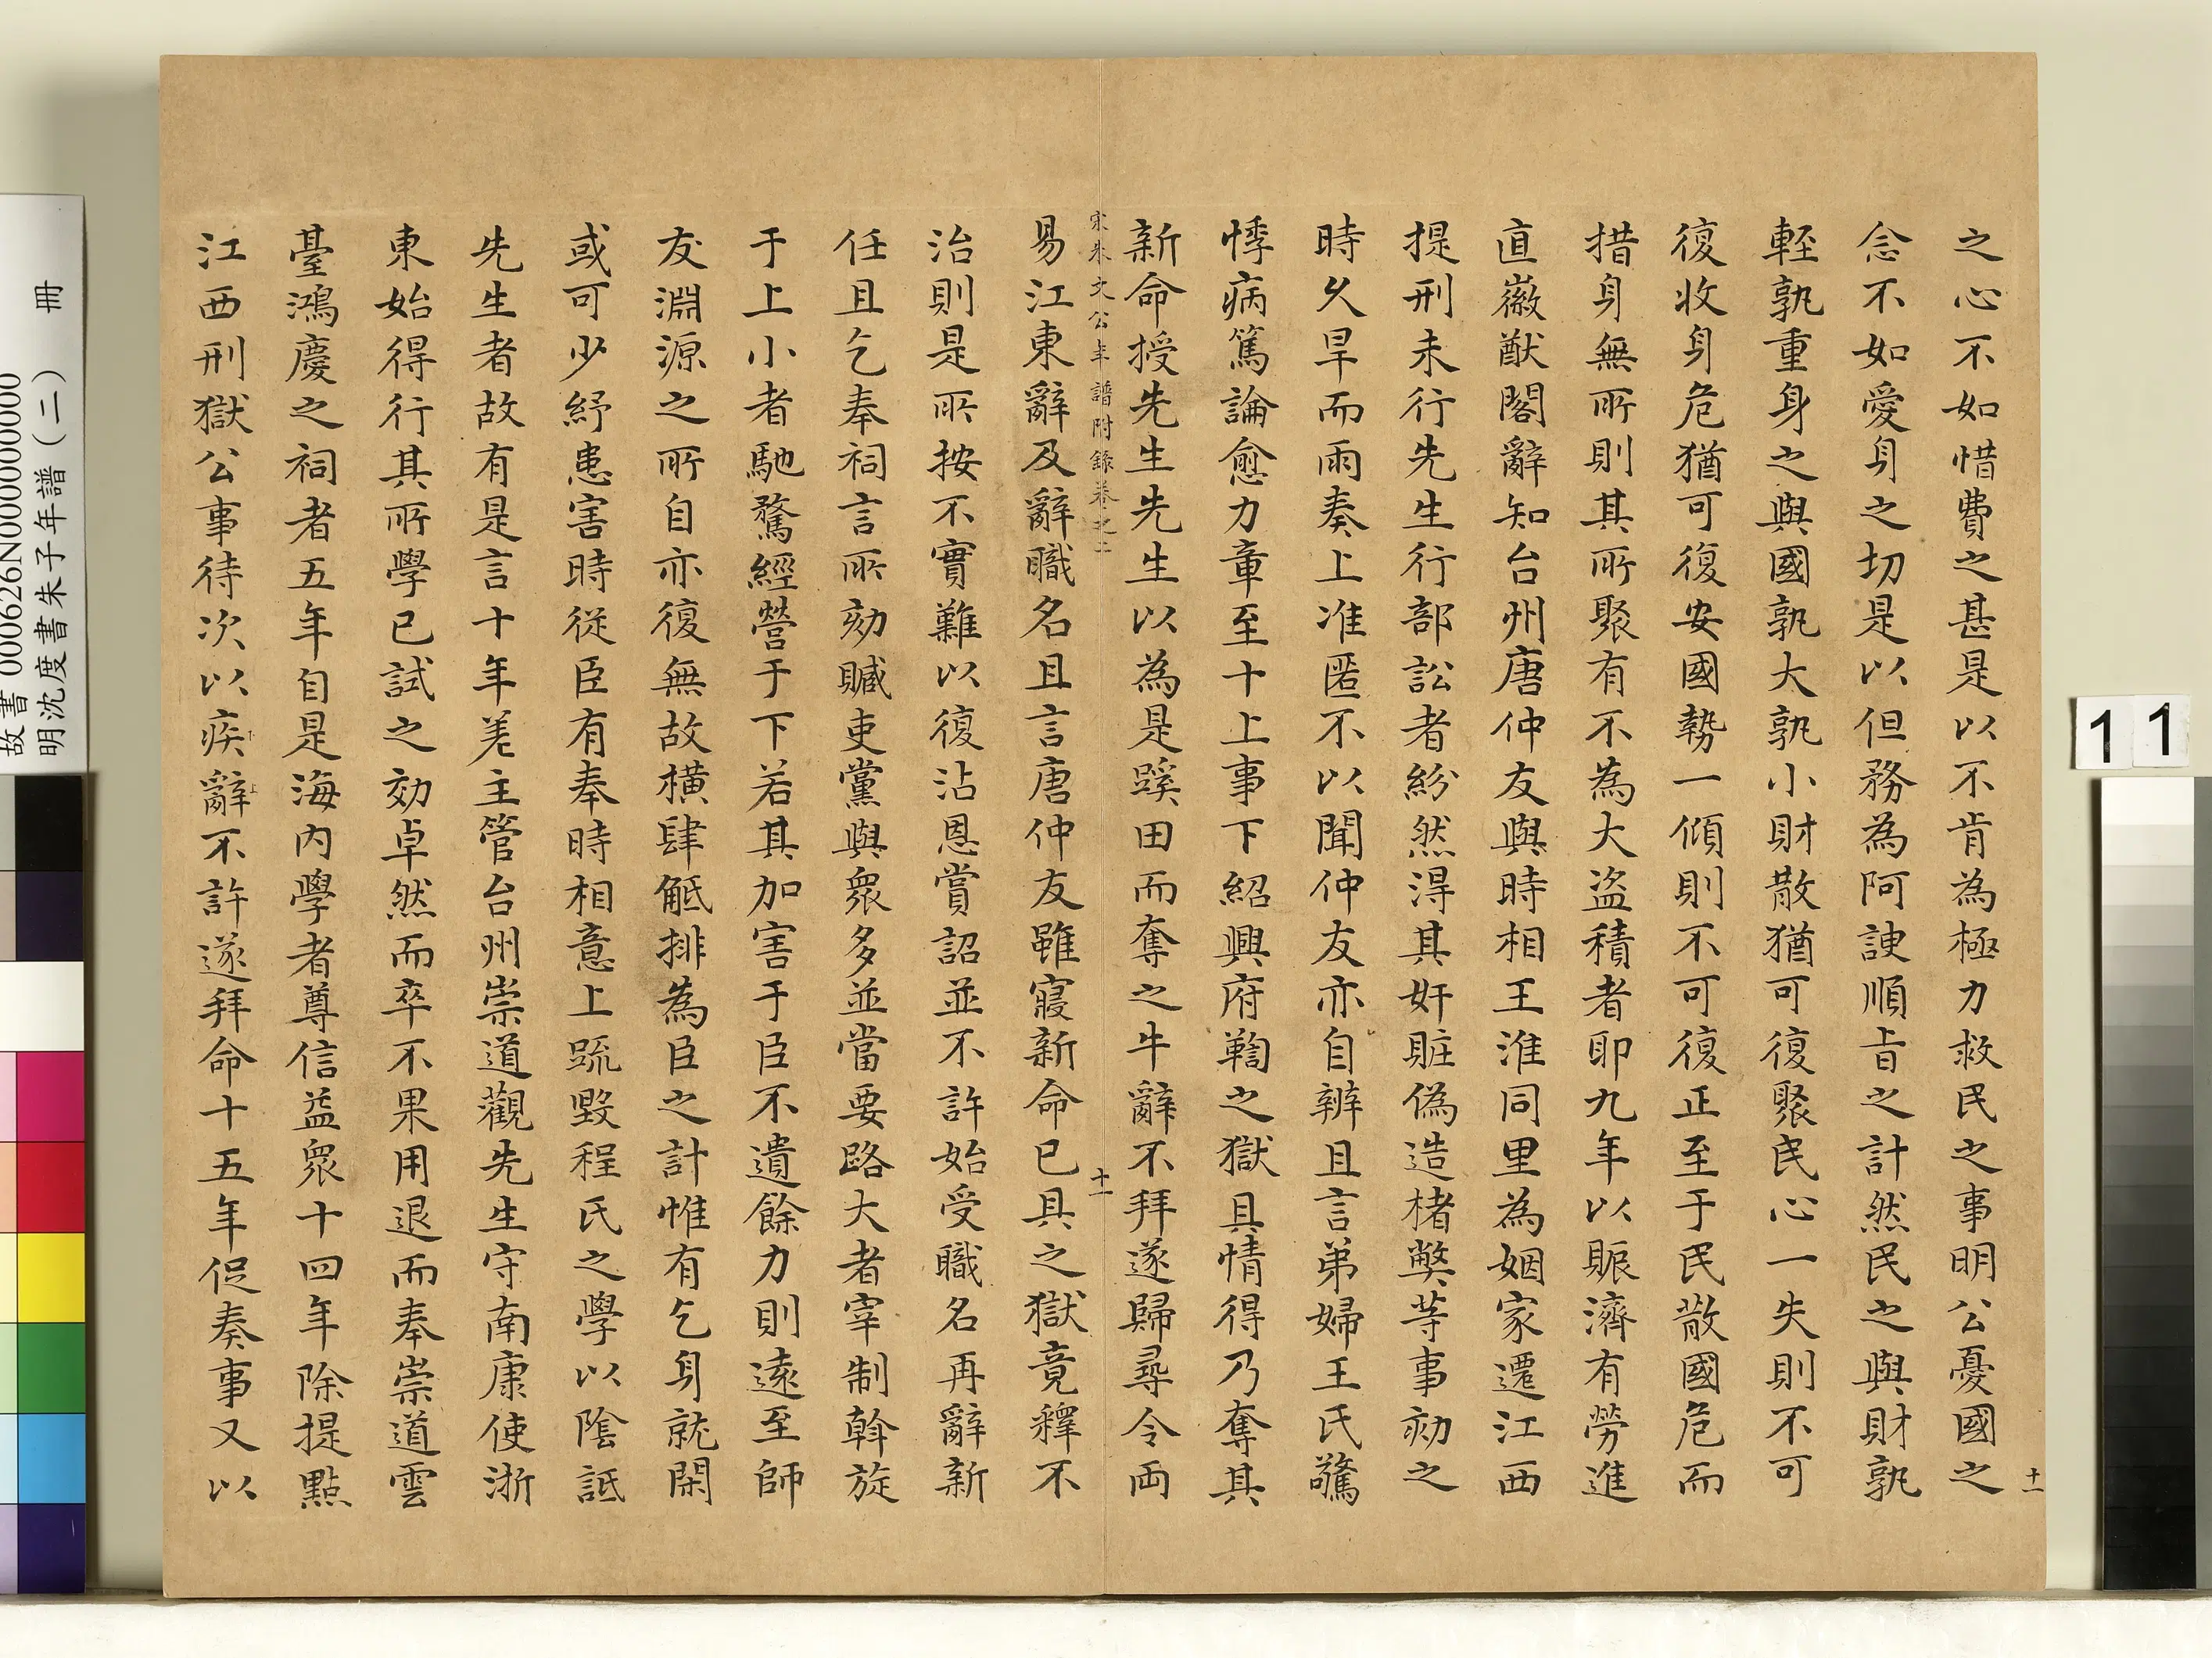 之心不如惜費之甚是以不肯為極力救民之事明公憂國之
念不如愛身之切是以但務為阿諛順旨之計然民之與財孰
輕孰重身之與國孰大孰小財散猶可復聚民心一失則不可
復收身危猶可復安國勢一傾則不可復正至于民散國危而
措身無所則其所聚有不為大盜積者耶九年以賑濟有勞進
直徽猷閣辭知台州唐仲友與時相王淮同里為姻家遷江西
提刑未行先生行部訟者紛然得其奸賍偽造楮弊等事劾之
時久旱而雨奏上准匿不以聞仲友亦自辨且言弟婦王氏驚
悸病篤論愈力章至十上事下紹興府鞫之獄具情得乃奪其
新命授先生先生以為是蹊田而奪之牛辭不拜遂歸尋令両
宋朱文公年譜附錄卷之二
十一
易江東辭及辭職名且言唐仲友雖寢新命已具之獄竟釋不
治則是所按不實難以復沾恩賞詔並不許始受職名再辭新
任且乞奉祠言所劾贓吏黨與眾多並當要路大者宰制斡旋
于上小者馳騖經營于下若其加害于臣不遺餘力則遠至師
友淵源之所自亦復無故橫肆觝排為臣之計惟有乞身就閑
或可少紓患害時從臣有奉時相意上疏毀程氏之學以陰詆
先生者故有是言十年差主管台州崇道觀先生守南康使浙
東始得行其所學已試之効卓然而卒不果用退而奉崇道雲
臺鴻慶之祠者五年自是海內學者尊信益眾十四年除提點
江西刑獄公事待次以疾辭不許遂拜命十五年促奏事又以
十一
11
故書 000626N000000000
明沈度書朱子年譜(二) 冊